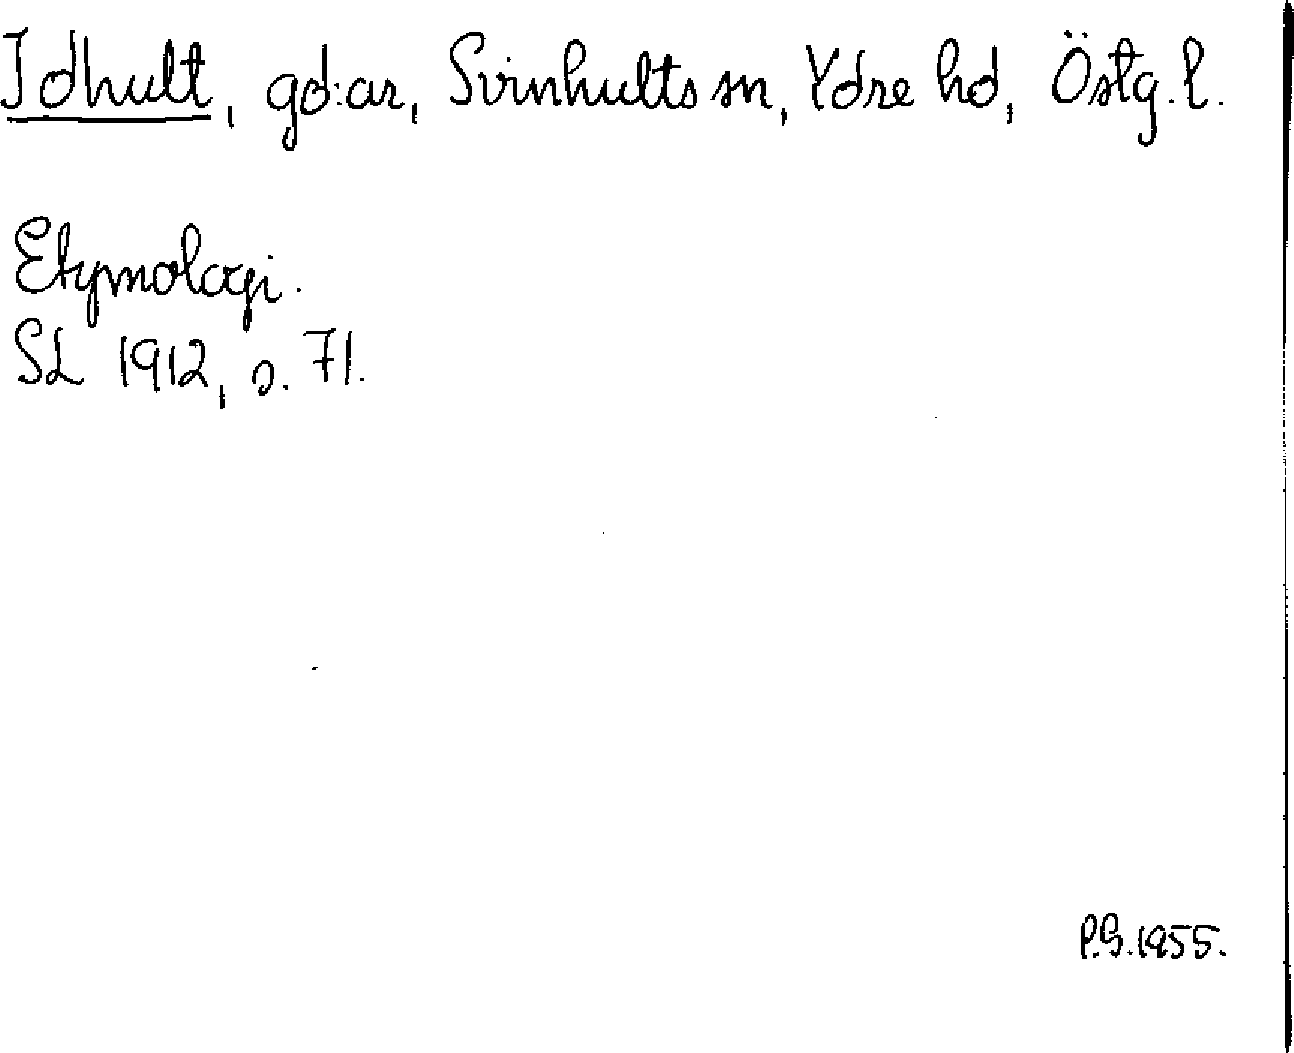 Idhult, gd:ar, Svinhults sn, Ydre hd, Östg. l.
Etymologi.
SL 1912, s. 71.
P.G. 1955.